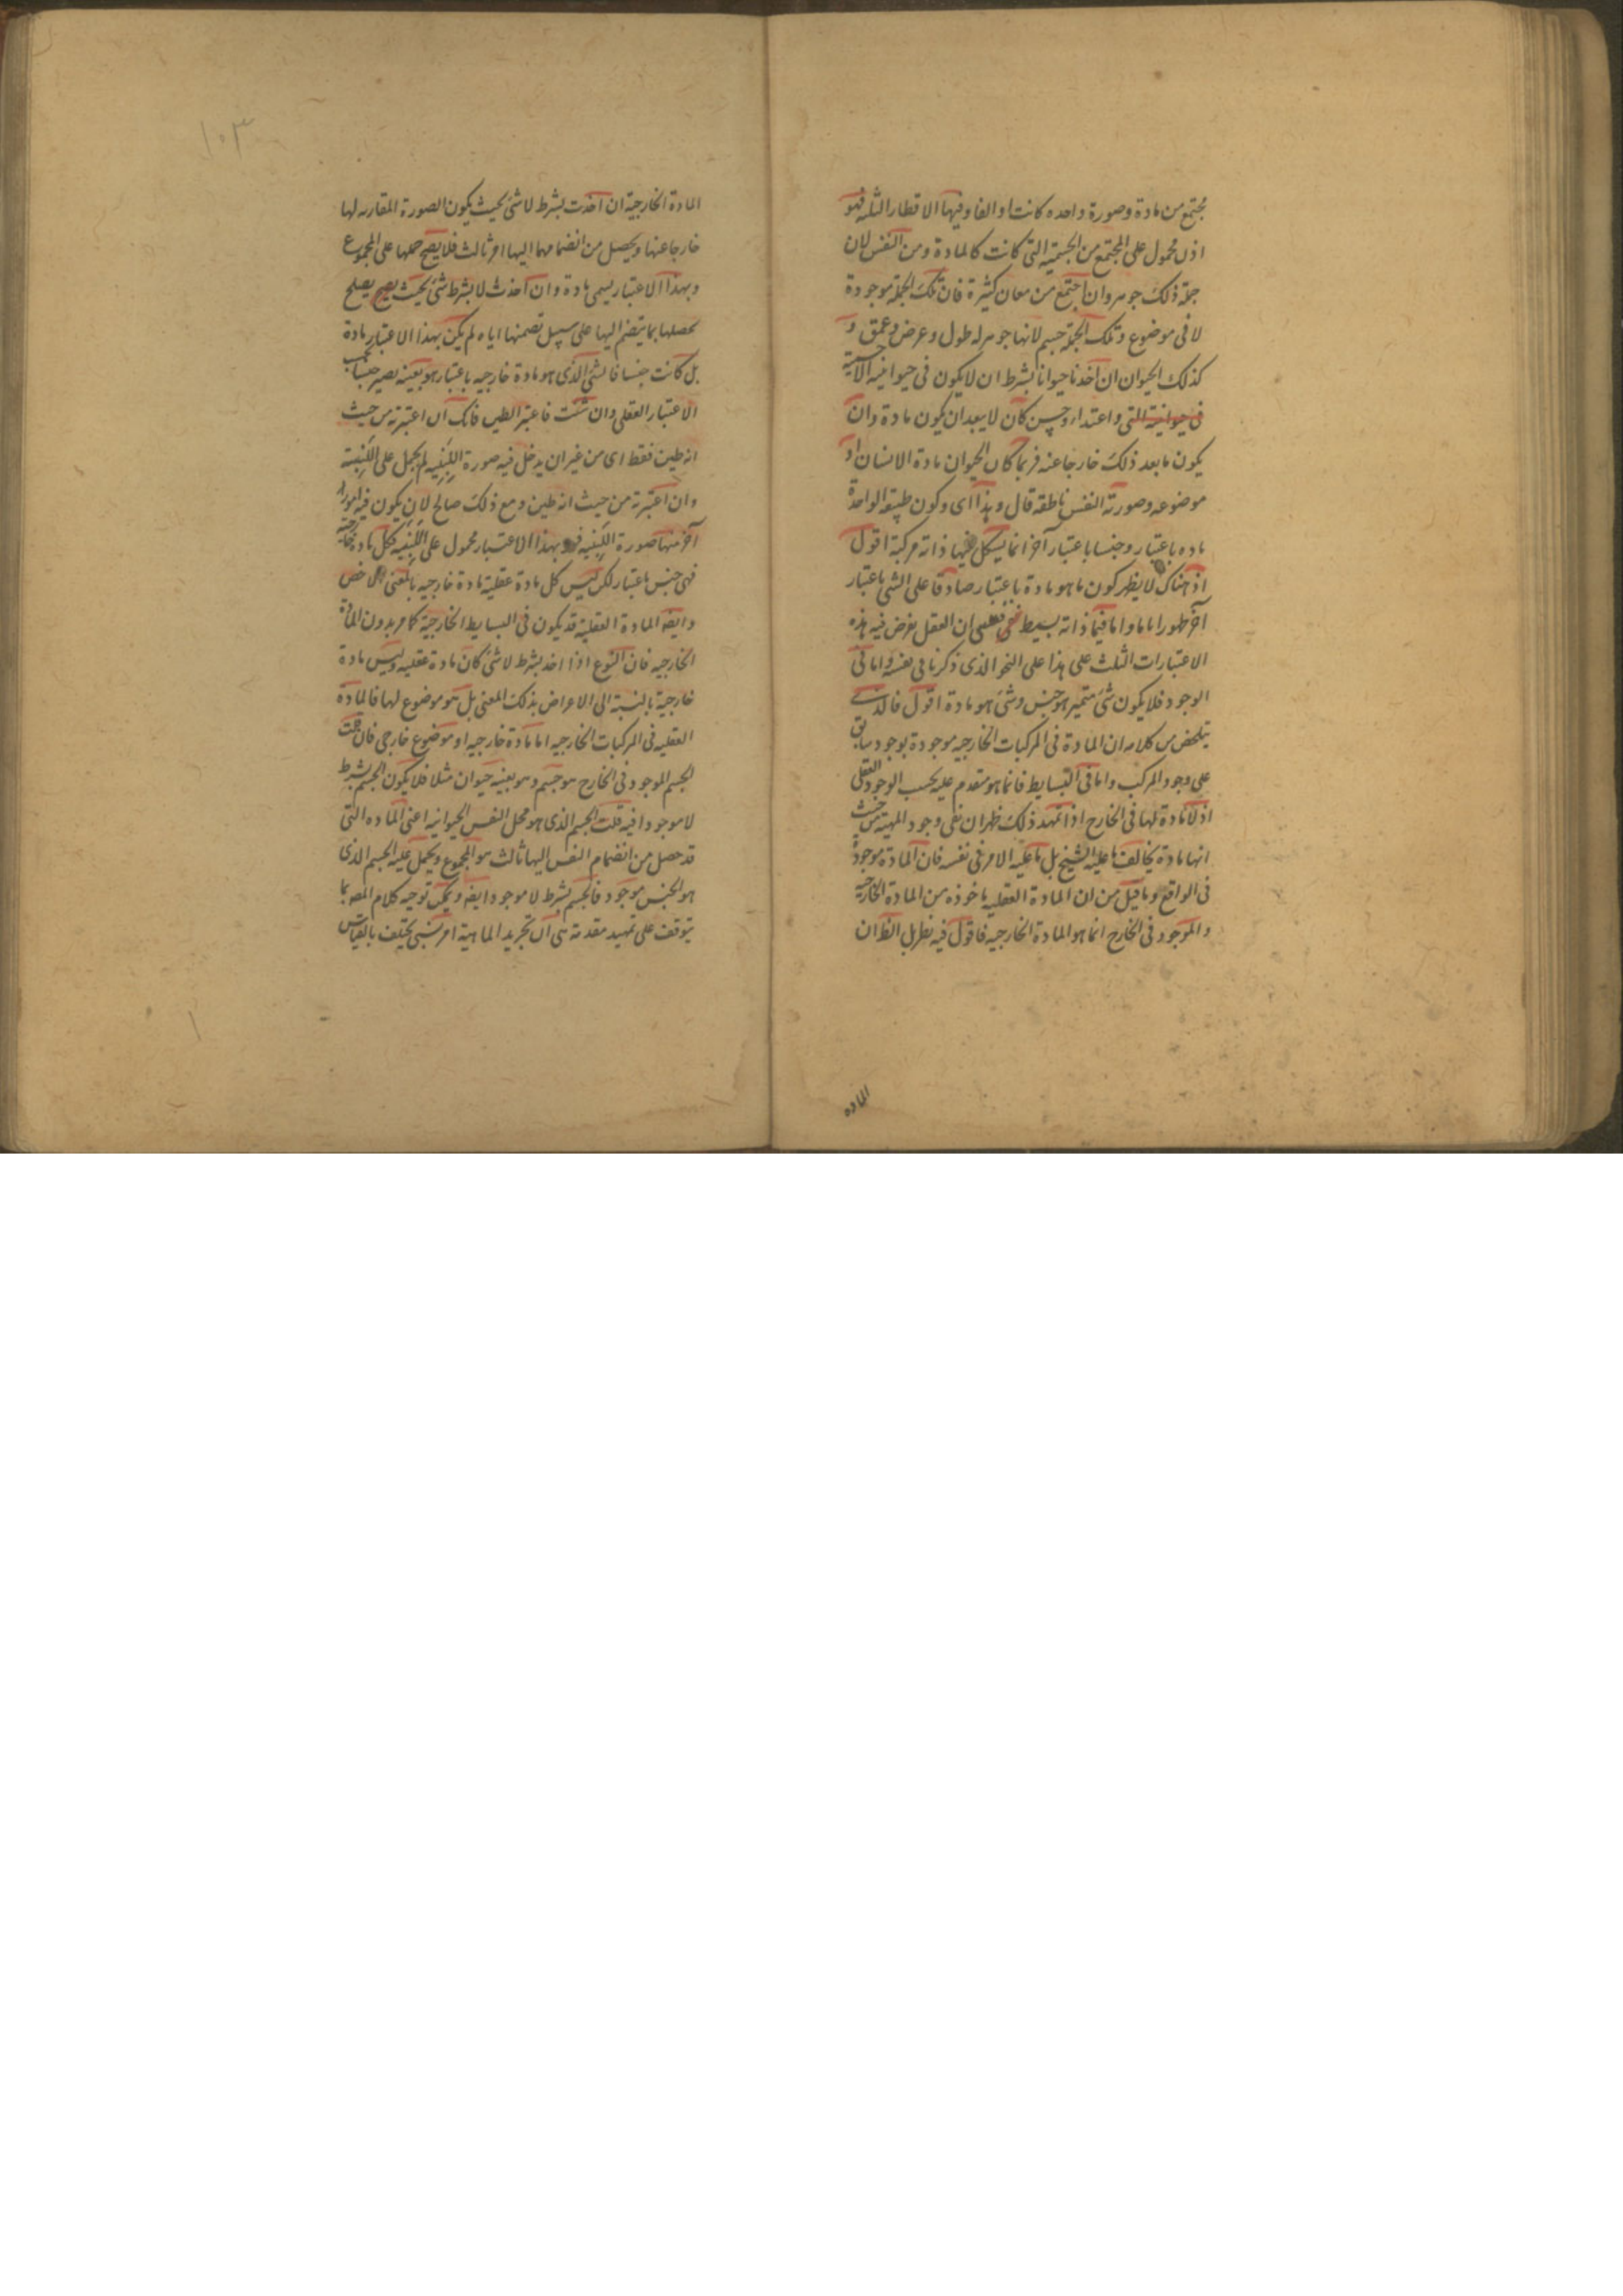 مجتمع من مادة وصورة واحده كانت او الفا وفيها الاقطار الثلثه فهو
اذن محمول على المجتمع من الجسمية التى كانت كالمادة ومن النفس لان
جملة ذلك جوهر وان اجتمع من معان كثيرة فان تلك الجملة موجودة
لا فى موضوع وتلك الجملة جسم لانها جوهر له طول وعرض وعمق و
كذلك الحيوان ان اخذنا حيوانا بشرط ان لا يكون فى حيوانيته الا جسمية
فى حيوانية التى واغتذاء وحس كان لا يبعد ان يكون مادة وان
يكون ما بعد ذلك خارجا عنه فربما كان الحيوان مادة الانسان او
موضوعه وصورته النفس ناطقه قال وهذا اى وكون طبيعة الواحدة
ماده باعتبار وجنسا باعتبار آخر انما يشكل فيما ذاته مركبة اقول
اذ هناك لا يظهر كون ما هو مادة باعتبار صادقا على الشى باعتبار
آخر ظهورا ما واما فيما ذاته بسيط فعسى ان العقل يفرض فيه هذه
الاعتبارات الثلث على هذا على النحو الذى ذكرنا فى نفسه واما فى
الوجود فلا يكون شئ متميز هو جنس وشئ هو مادة اقول فالذى
يتلخص من كلامه ان المادة فى المركبات الخارجيه موجودة بوجود سابق
على وجود المركب واما فى البسايط فانما هو متقدم عليه بحسب الوجود العقلى
اذ لا مادة لها فى الخارج اذا تمهد ذلك ظهر ان نفى وجود المهية من حيث
انها مادة يخالف ما عليه الشيخ بل ما عليه الامر فى نفسه فان المادة موجودة
فى الواقع وما قيل من ان المادة العقليه ماخوذه من المادة الخارجية
والموجود فى الخارج انما هو المادة الخارجيه فاقول فيه نظر بل الظ ان
الماده
١٠٣
المادة الخارجية ان اخذت بشرط لا شئ بحيث يكون الصورة المقارنه لها
خارجا عنها ويحصل من انضمامها اليها امر ثالث فلا يصح حملها على المجموع
وبهذا الاعتبار يسمى مادة وان اخذت لا بشرط شئ بحيث يصح يصلح
تحصلها بما ينضم اليها على سبيل تضمنها اياه لم يكن بهذا الاعتبار مادة
بل كانت جنسا فالشئ الذى هو مادة خارجيه باعتبار هو بعينه يصير جنسا بحسب
الاعتبار العقلى وان شئت فاعتبر الطين فانك ان اعتبرته من حيث
انه طين فقط اى من غير ان يدخل فيه صورة اللبنيه لم يحمل على اللبنية
وان اعتبرته من حيث انه طين ومع ذلك صالح لان يكون فيه امورا
آخر منها صورة اللبنيه فهو بهذا الاعتبار محمول على اللبنيه فكل مادة خارجية
فهى جنس باعتبار لكن ليس كل مادة عقلية مادة خارجيه بالمعنى الاخص
وايضه المادة العقلية قد يكون فى البسايط الخارجية كما مر بدون المادة
الخارجيه فان النوع اذا اخذ بشرط لا شئ كان مادة عقليه وليس مادة
خارجية بالنسبة الى الاعراض بذلك المعنى بل هو موضوع لها فالمادة
العقليه فى المركبات الخارجيه اما مادة خارجيه او موضوع خارجى فان قلت
الجسم الموجود فى الخارج هو جسم وهو بعينه حيوان مثلا فلا يكون الجسم بشرط
لا موجودا فيه قلت الجسم الذى هو محل النفس الحيوانيه اعنى الماده التى
قد حصل من انضمام النفس اليها ثالث هو المجموع ويحمل عليه الجسم الذى
هو الجنس موجود فالجسم بشرط لا موجود ايضه ويمكن توجيه كلام المصه بما
يتوقف على تمهيد مقدمة هى ان تجريد الماهية امر نسبى يختلف بالقياس